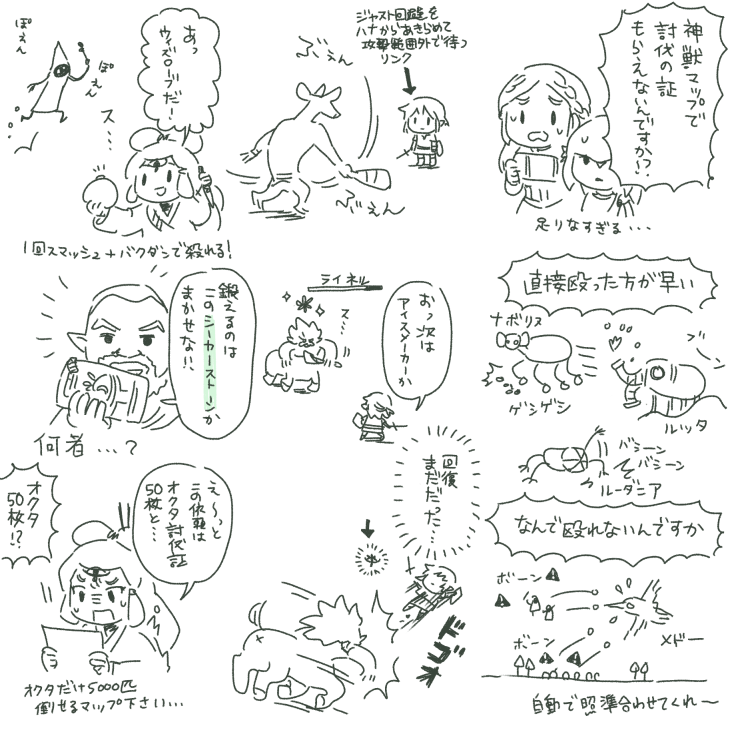 神獣マップで
討伐の証
もらえないんですか!?
足りなすぎる...
直接殴った方が早い
ナボリス
ゲシゲシ
ブン
ルッタ
バシーン
バシーン
ルーダニア
なんで殴れないんですか
ボーン
ボーン
メドー
自動で照準合わせてくれ〜
ジャスト回避を
ハナからあきらめて
攻撃範囲外で待つ
リンク
ぶぇん
ぶぇん
ライネル
ス...
おっ次は
アイスメーカーか
回復
まだだった...
ドゴォ
あっ
ウィズローブだ!
ぽえん
ぽえん
ス...
1回スマッシュ+バクダンで殺れる!
鍛えるのは
このシーカーストーンか
まかせない!
何者...?
え〜っと
この依頼は
オクタ討伐証
50枚と...
オクタ
50枚!?
オクタだけ5000匹
倒せるマップ下さい...